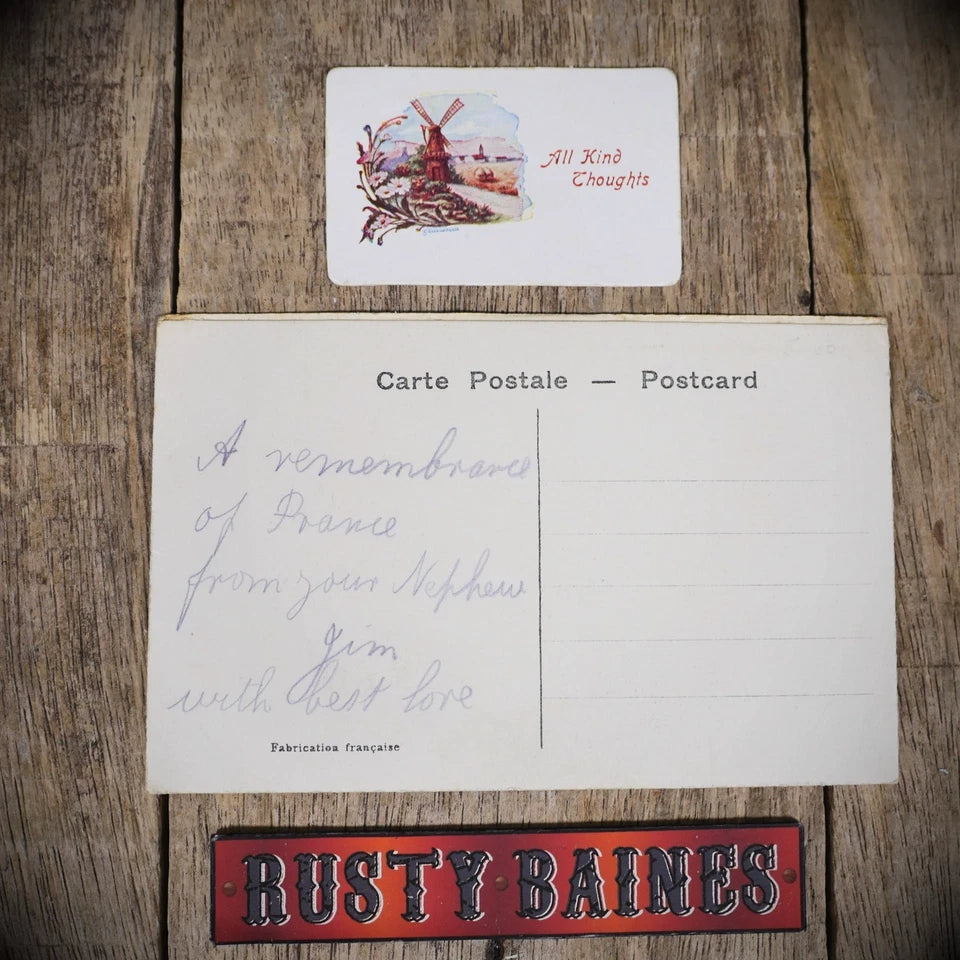 All Kind
Thoughts
Carte Postale — Postcard
A remembrance
of France
from your Nephew
Jim
with best love
Fabrication française
RUSTY BAINES